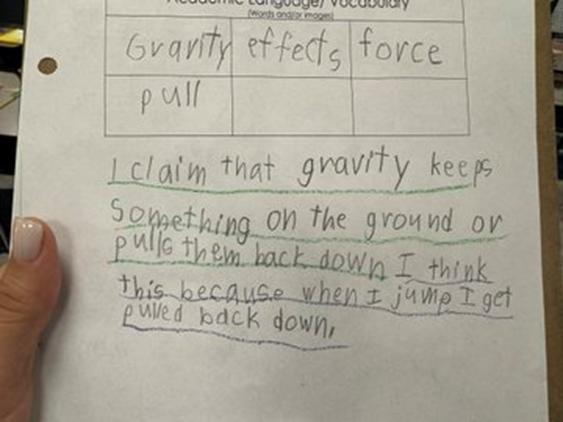 Academic Language/Vocabulary
(Words and/or images)
Gravity effects force
pull
I claim that gravity keeps
something on the ground or
pulls them back down I think
this because when I jump I get
pulled back down.